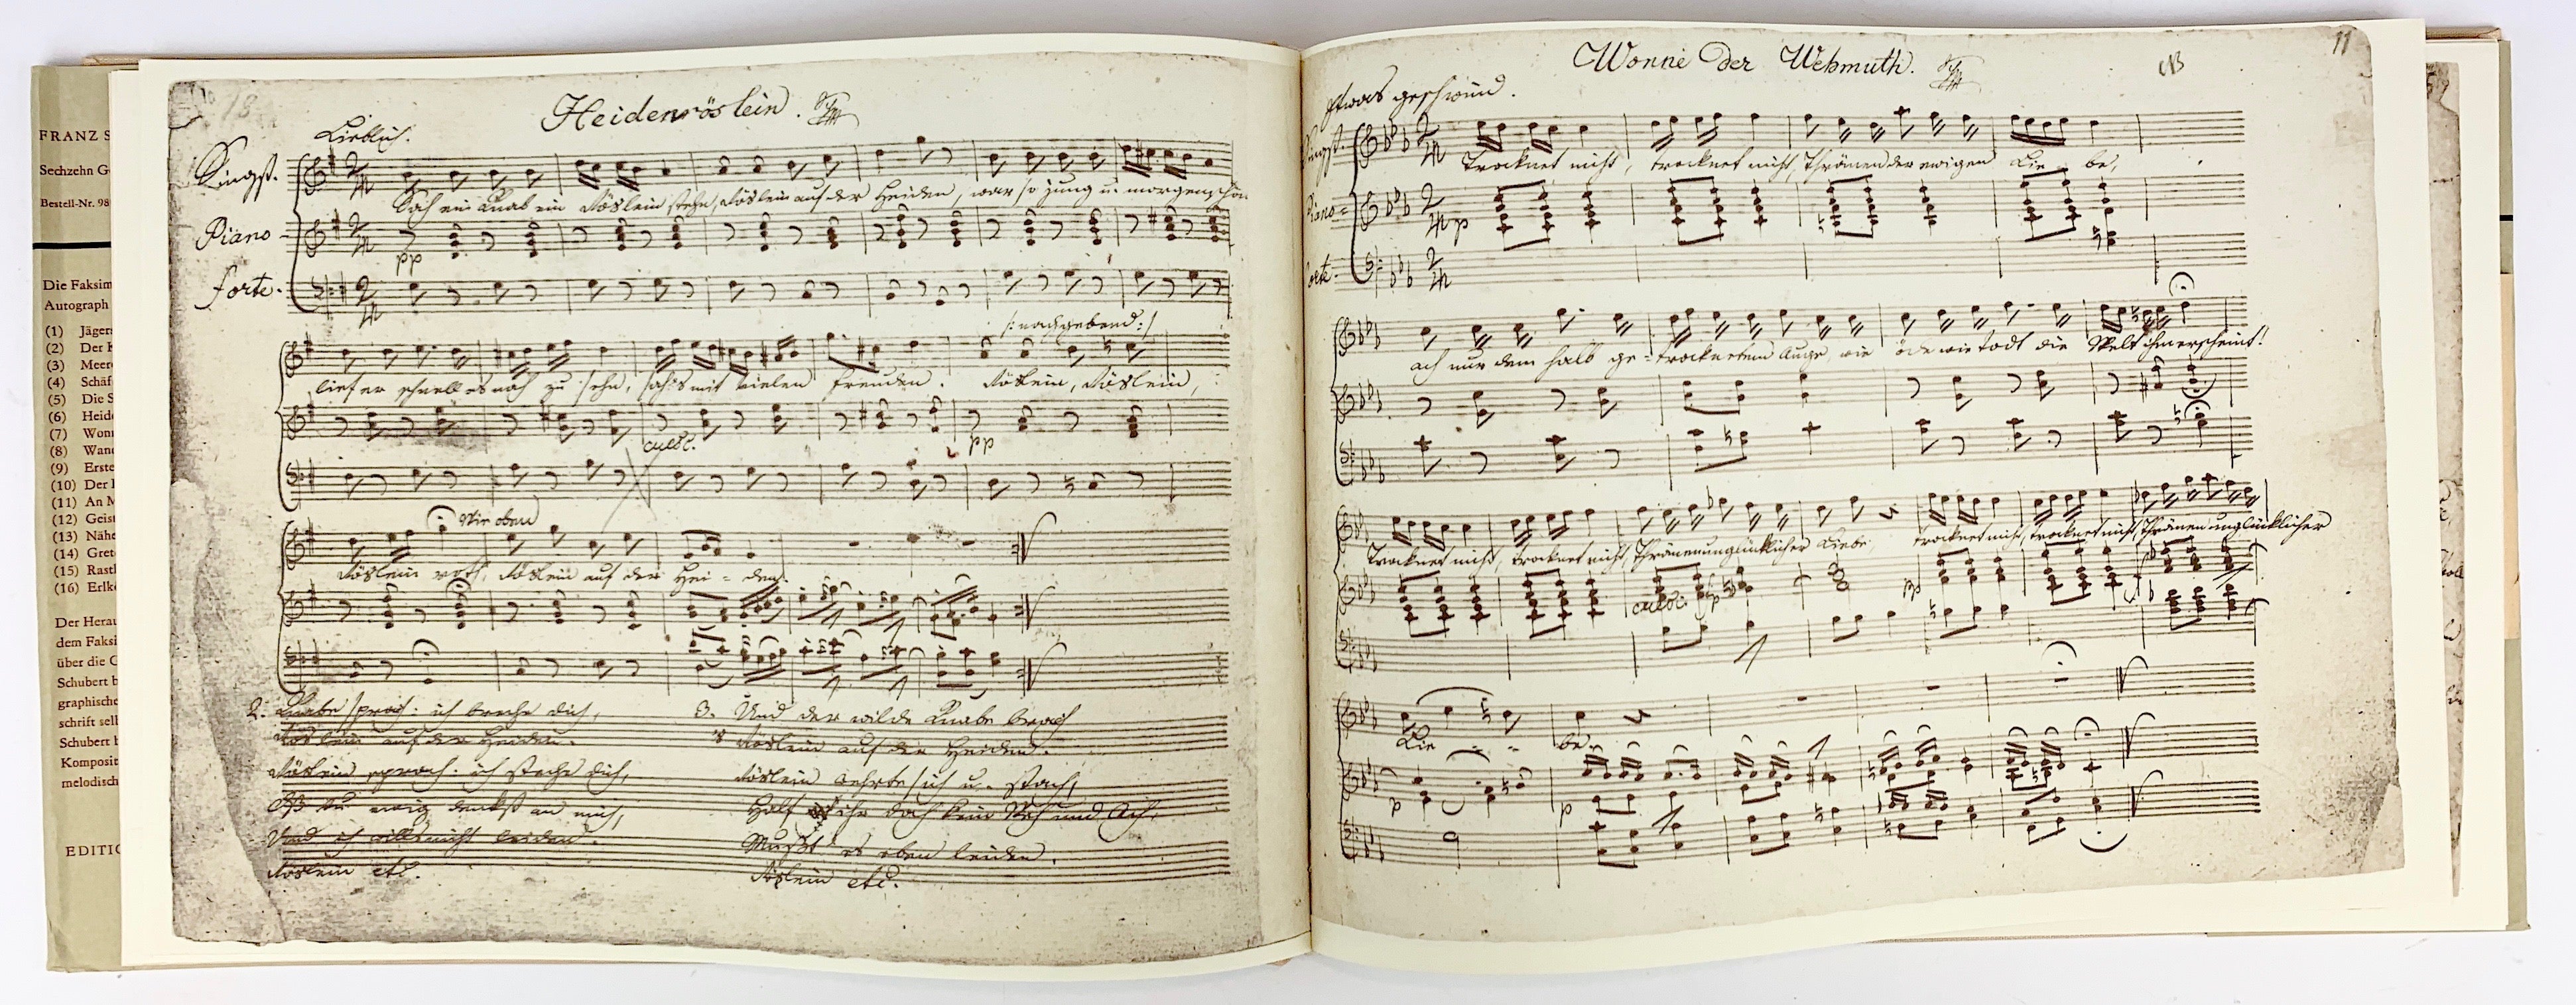 FRANZ S
Sechzehn G
Bestell-Nr. 98
Die Faksim
Autograph
(1) Jägers
(2) Der K
(3) Meere
(4) Schäf
(5) Die S
(6) Heide
(7) Wonn
(8) Wand
(9) Erste
(10) Der
(11) An M
(12) Geist
(13) Nähe
(14) Gret
(15) Rastl
(16) Erlkö
Der Herau
dem Faksi
über die
Schubert b
graphische
schrift sell
Schubert b
Komposit
melodisch
EDITIO
18
Heidenröslein.
Lieblich.
Singst.
Sah ein Knab ein Röslein stehn, Röslein auf der Heiden, war so jung u. morgenschön
Piano
pp
forte.
/: nachgebend :/
lief er schnell es nah zu sehn, sah's mit vielen Freuden. Röslein, Röslein,
cresc.
pp
Wie oben
Röslein roth, Röslein auf der Hei - den.
2. Knabe sprach: ich breche dich,
Röslein auf der Heiden.
Röslein sprach: ich steche dich,
Daß du ewig denkst an mich,
Und ich will's nicht leiden.
Röslein etc.
3. Und der wilde Knabe brach
's Röslein auf der Heiden.
Röslein wehrte sich u. stach,
Half ihr doch kein Weh und Ach,
Mußt' es eben leiden.
Röslein etc.
11
Wonne der Wehmuth.
NB
Etwas geschwind.
Singst.
Trocknet nicht, trocknet nicht, Thränen der ewigen Lie - be,
Piano-
p
forte.
ach nur dem halb ge-trockneten Auge wie öde wie todt die Welt ihm erscheint!
Trocknet nicht, trocknet nicht, Thränen unglücklicher Liebe trocknet nicht, trocknet nicht, Thränen unglücklicher
cresc.
fp
pp
Lie - - be.
p
p